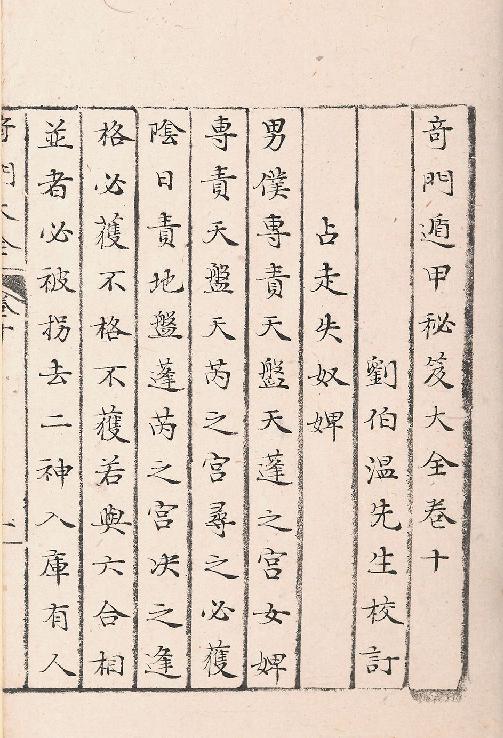 奇門遁甲秘笈大全卷十
劉伯溫先生校訂
占走失奴婢
男僕專責天盤天蓬之宮女婢
專責天盤天芮之宮尋之必獲
陰日責地盤蓬芮之宮決之逢
格必獲不格不獲若與六合相
並者必被拐去二神入庫有人
奇門大全 卷十